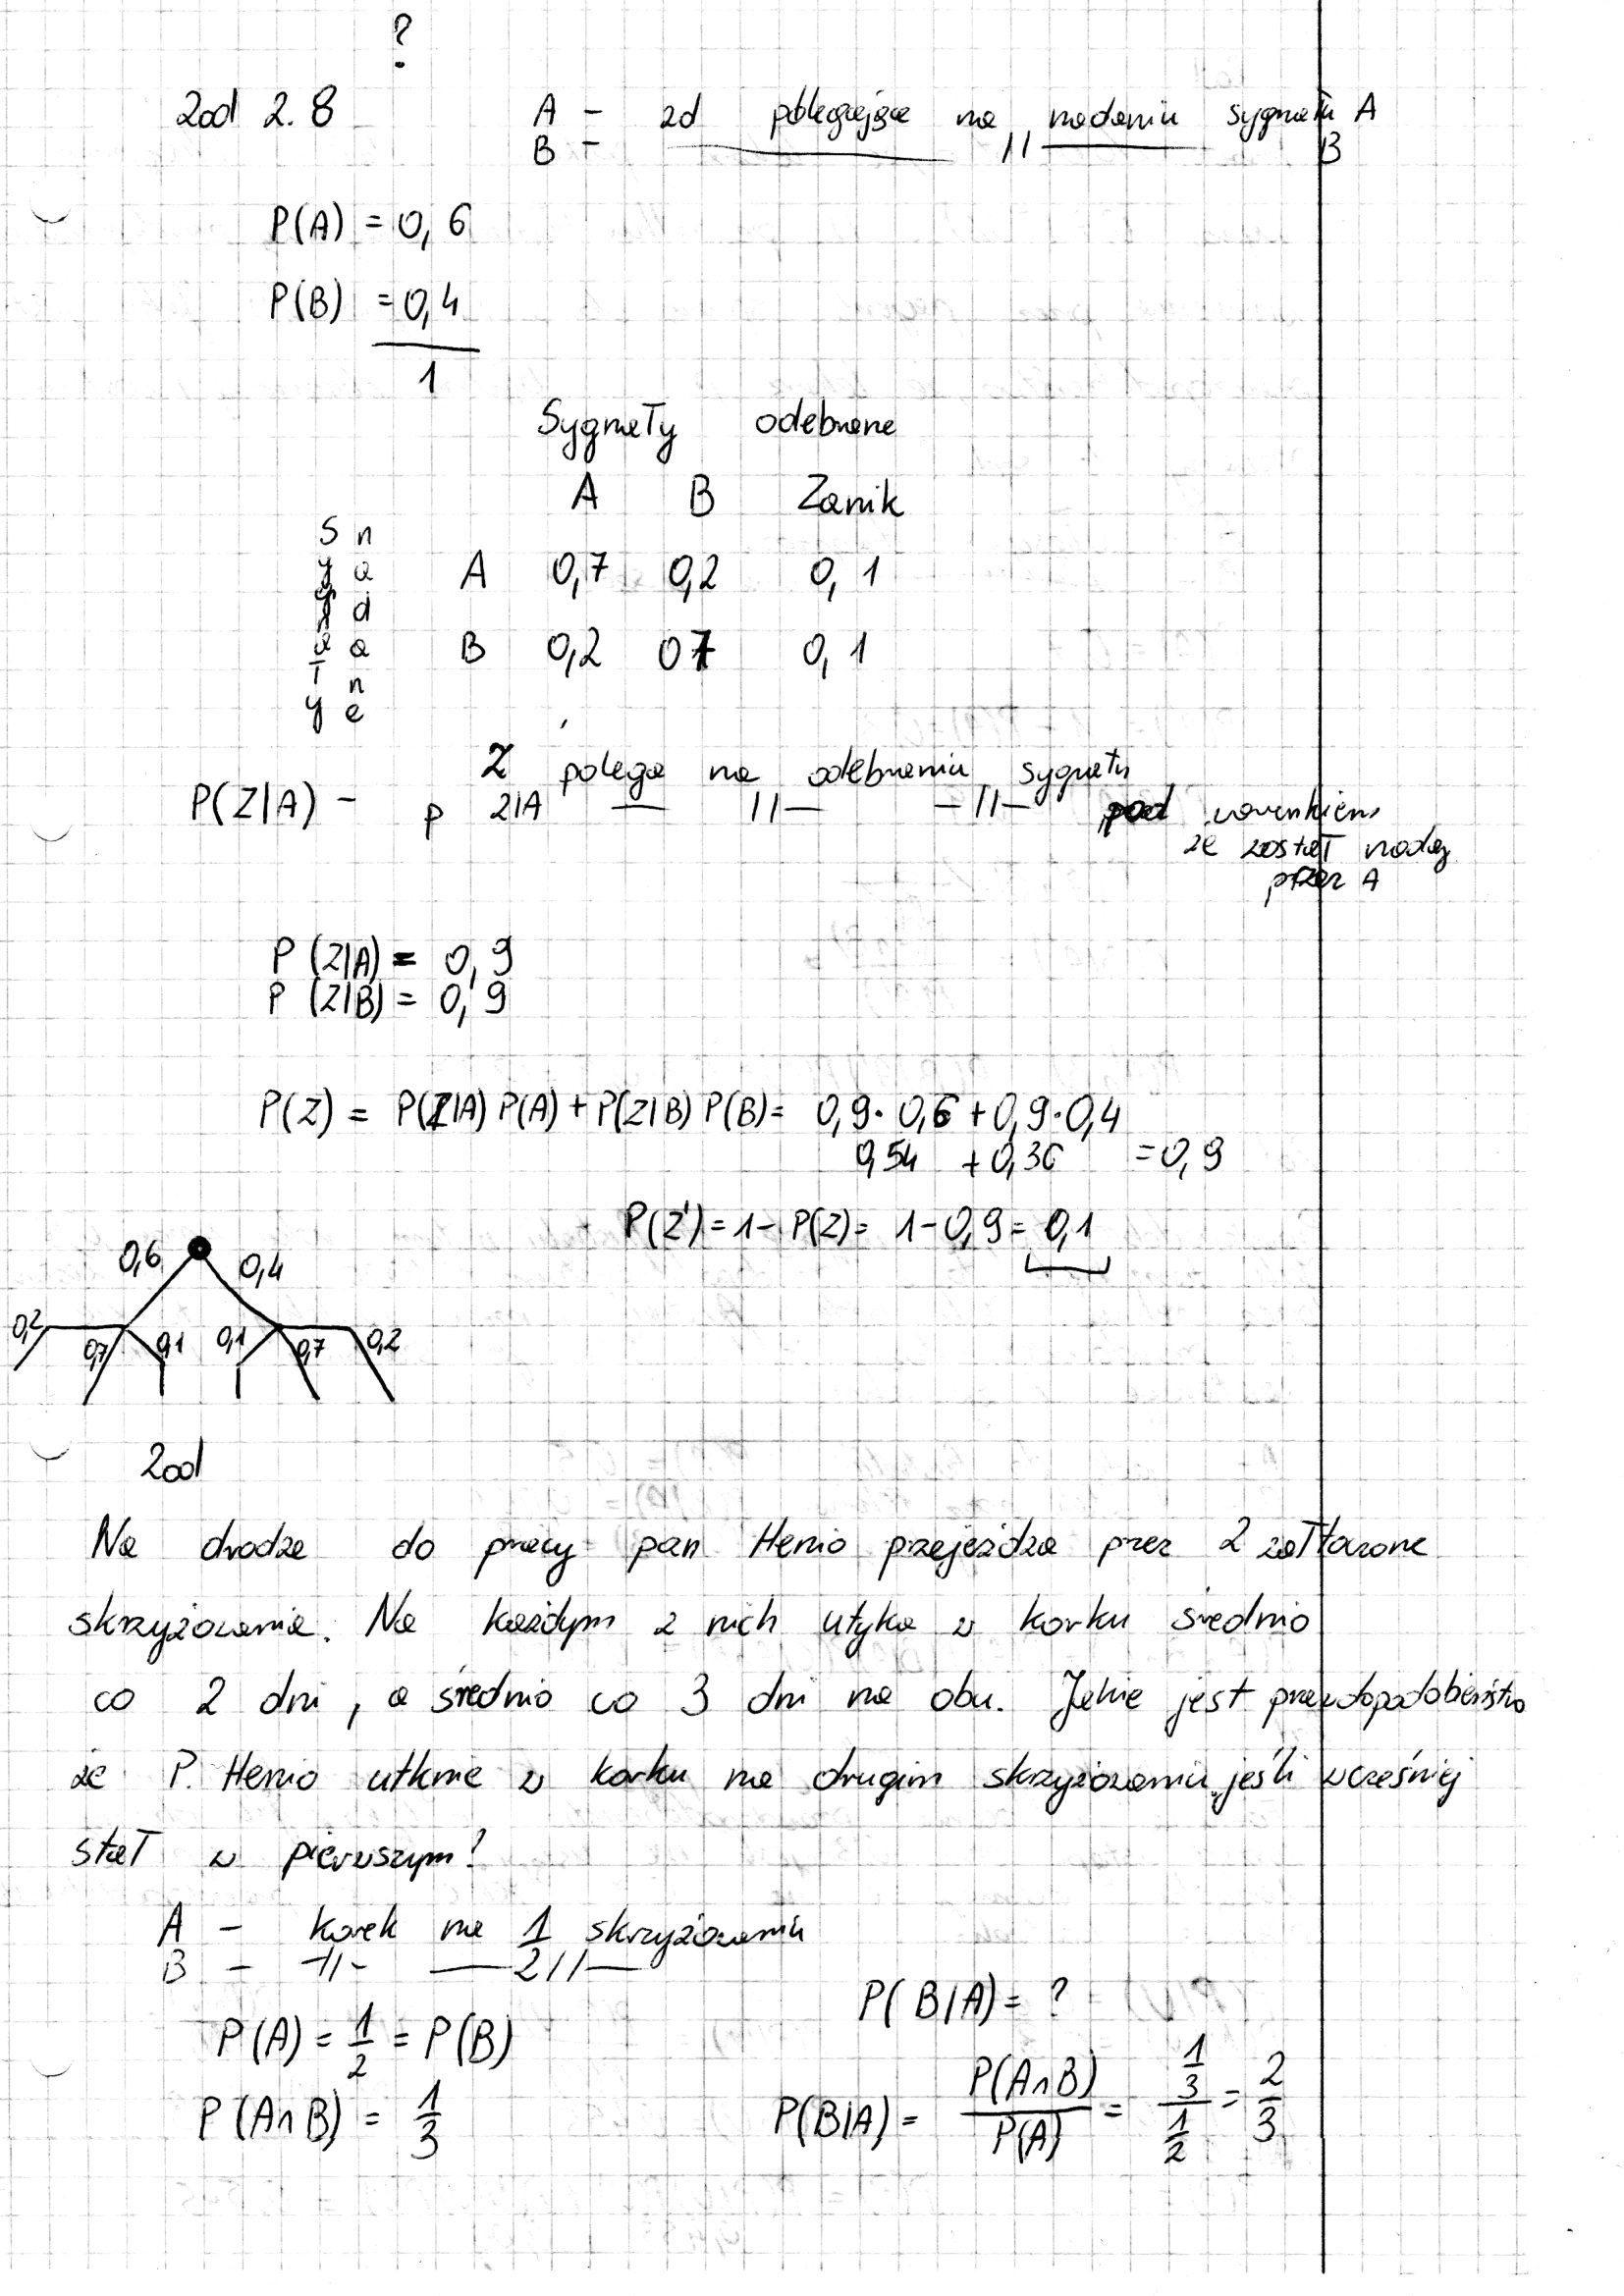 ?
Zad 2.8
A - zd polegające na nadaniu sygnału A
B - —— // —— B
P(A) = 0,6
P(B) = 0,4
1
Sygnały odebrane
A B Zanik
Sygnały nadane
A 0,7 0,2 0,1
B 0,2 0,7 0,1
Z polega na odebraniu sygnału
P(Z|A) - p Z|A — //— —//— pod warunkiem
że został nadany
przez A
P(Z|A) = 0,9
P(Z|B) = 0,9
P(Z) = P(Z|A) P(A) + P(Z|B) P(B) = 0,9 · 0,6 + 0,9 · 0,4
0,54 + 0,36 = 0,9
P(Z') = 1 - P(Z) = 1 - 0,9 = 0,1
0,6 0,4
0,2 0,7 0,1 0,1 0,7 0,2
Zad
Na drodze do pracy pan Henio przejeżdża przez 2 zatłoczone
skrzyżowania. Na każdym z nich utyka w korku średnio
co 2 dni, a średnio co 3 dni na obu. Jakie jest prawdopodobieństwo
że P. Henio utknie w korku na drugim skrzyżowaniu jeśli wcześniej
stał w pierwszym?
A - korek na 1 skrzyżowaniu
B - -//- —— 2 //—
P(B|A) = ?
P(A) = 1/2 = P(B)
P(A∩B) = 1/3
P(B|A) = P(A∩B)/P(A) = (1/3)/(1/2) = 2/3